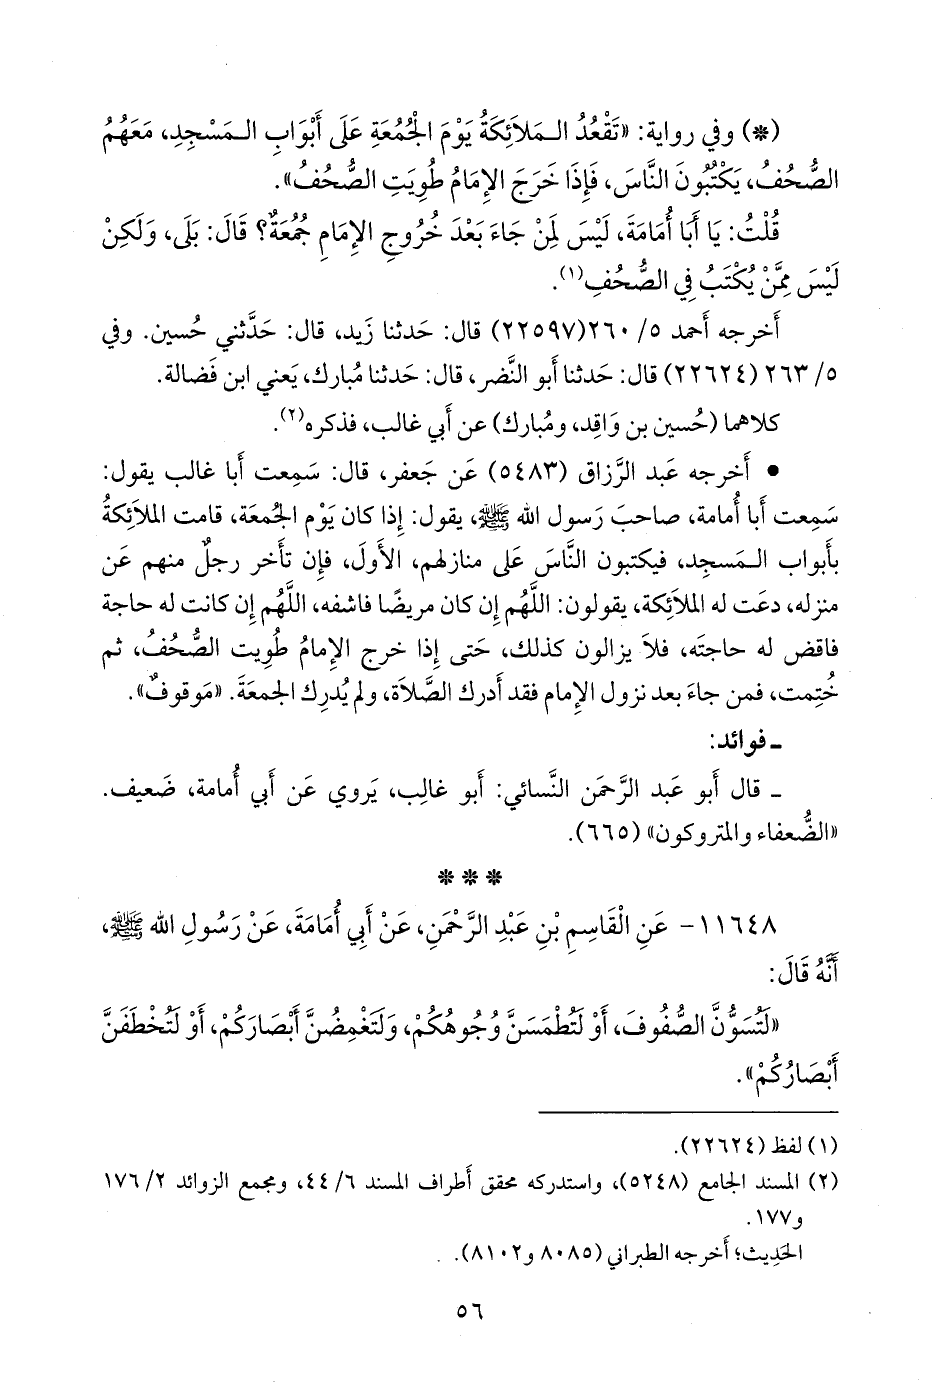 (*) وفي رواية: «تَقْعُدُ الـمَلاَئِكَةُ يَوْمَ الْجُمُعَةِ عَلَى أَبْوَابِ الـمَسْجِدِ، مَعَهُمُ
الصُّحُفُ، يَكْتُبُونَ النَّاسَ، فَإِذَا خَرَجَ الإِمَامُ طُوِيَتِ الصُّحُفُ».
قُلْتُ: يَا أَبَا أُمَامَةَ، لَيْسَ لِمَنْ جَاءَ بَعْدَ خُرُوجِ الإِمَامِ جُمُعَةٌ؟ قَالَ: بَلَى، وَلَكِنْ
لَيْسَ مِمَّنْ يُكْتَبُ فِي الصُّحُفِ(١).
أَخرجه أَحمد ٥/ ٢٦٠(٢٢٥٩٧) قال: حَدثنا زَيد، قال: حَدَّثني حُسين. وفي
٥/ ٢٦٣ (٢٢٦٢٤) قال: حَدثنا أَبو النَّضر، قال: حَدثنا مُبارك، يَعني ابن فَضالة.
كلاهما (حُسين بن وَاقِد، ومُبارك) عن أَبي غالب، فذكره(٢).
• أَخرجه عَبد الرَّزاق (٥٤٨٣) عَن جَعفر، قال: سَمِعت أَبا غالب يقول:
سَمِعت أَبا أُمامة، صاحبَ رَسول الله ﷺ، يقول: إِذا كان يَوْم الجُمعَة، قامت الملاَئِكةُ
بأَبواب الـمَسجِد، فيكتبون النَّاسَ عَلى منازلهم، الأَولَ، فإِن تأَخر رجلٌ منهم عَن
منزله، دعَت له الملاَئِكة، يقولون: اللَّهُم إِن كان مريضًا فاشفه، اللَّهُم إِن كانت له حاجة
فاقض له حاجتَه، فلاَ يزالون كذلك، حَتى إِذا خرج الإِمامُ طُوِيت الصُّحُفُ، ثم
خُتِمت، فمن جاءَ بعد نزول الإِمام فقد أَدرك الصَّلاَة، ولم يُدرِك الجمعَةَ. «مَوقوفٌ».
ـ فوائد:
ـ قال أَبو عَبد الرَّحمَن النَّسائي: أَبو غالِب، يَروي عَن أَبي أُمامة، ضَعيف.
«الضُّعفاء والمتروكون» (٦٦٥).
* * *
١١٦٤٨- عَنِ الْقَاسِمِ بْنِ عَبْدِ الرَّحْمَنِ، عَنْ أَبِي أُمَامَةَ، عَنْ رَسُولِ الله ﷺ،
أَنَّهُ قَالَ:
«لَتُسَوُّنَّ الصُّفُوفَ، أَوْ لَتُطْمَسَنَّ وُجُوهُكُمْ، وَلَتَغْمِضُنَّ أَبْصَارَكُمْ، أَوْ لَتُخْطَفَنَّ
أَبْصَارُكُمْ».
(١) لفظ (٢٢٦٢٤).
(٢) المسند الجامع (٥٢٤٨)، واستدركه محقق أَطراف المسند ٦/ ٤٤، ومجمع الزوائد ٢/ ١٧٦
و١٧٧.
الحَدِيث؛ أَخرجه الطبراني (٨٠٨٥ و٨١٠٢).
٥٦